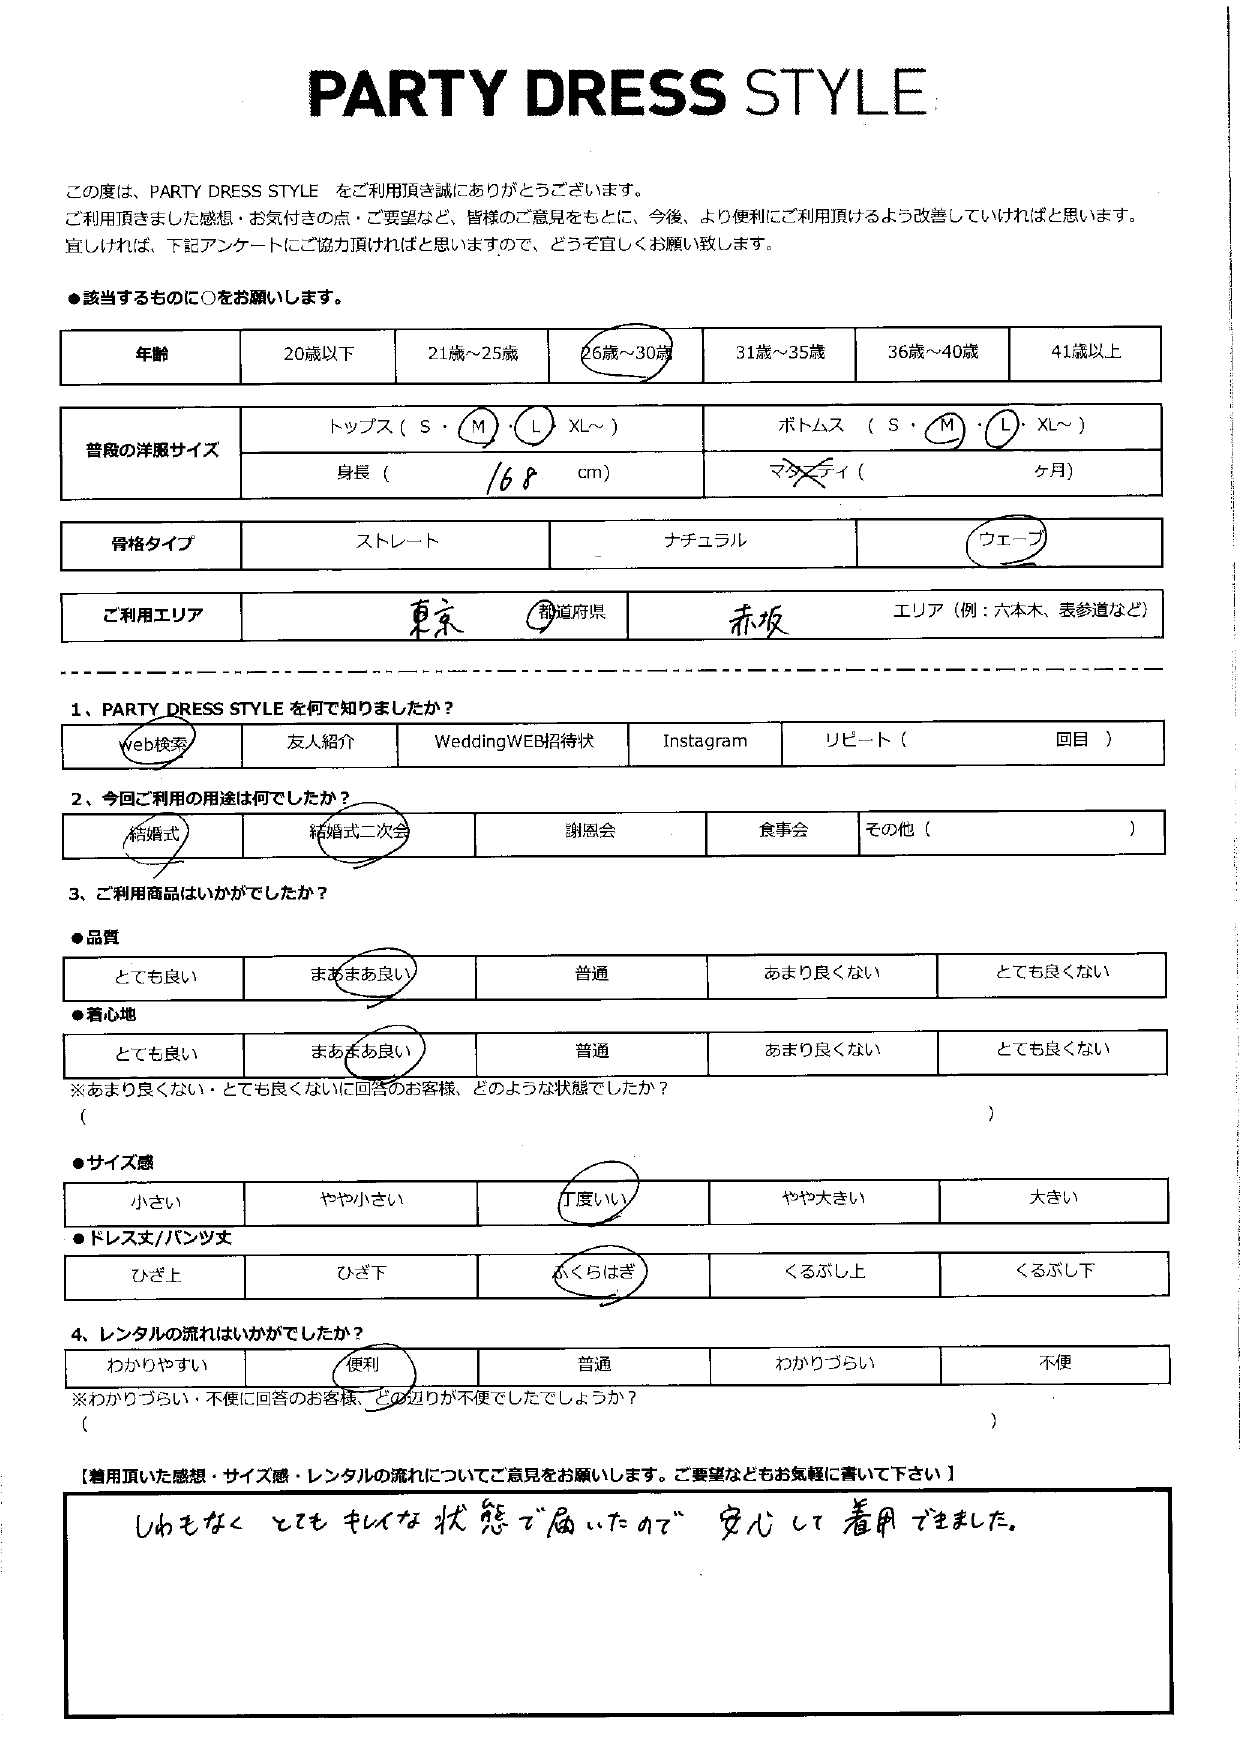 PARTY DRESS STYLE
この度は、PARTY DRESS STYLE　をご利用頂き誠にありがとうございます。
ご利用頂きました感想・お気付きの点・ご要望など、皆様のご意見をもとに、今後、より便利にご利用頂けるよう改善していければと思います。
宜しければ、下記アンケートにご協力頂ければと思いますので、どうぞ宜しくお願い致します。
●該当するものに○をお願いします。
年齢 20歳以下 21歳～25歳 26歳～30歳 31歳～35歳 36歳～40歳 41歳以上
普段の洋服サイズ トップス ( S ・ M ・ L ・ XL～ ) ボトムス ( S ・ M ・ L ・ XL～ )
身長 ( 168 cm) マタニティ ( ヶ月)
骨格タイプ ストレート ナチュラル ウェーブ
ご利用エリア 東京 都道府県 赤坂 エリア（例：六本木、表参道など）
1、PARTY DRESS STYLE を何で知りましたか？
web検索 友人紹介 WeddingWEB招待状 Instagram リピート（ 回目 ）
2、今回ご利用の用途は何でしたか？
結婚式 結婚式二次会 謝恩会 食事会 その他（ ）
3、ご利用商品はいかがでしたか？
●品質
とても良い まあまあ良い 普通 あまり良くない とても良くない
●着心地
とても良い まあまあ良い 普通 あまり良くない とても良くない
※あまり良くない・とても良くないに回答のお客様、どのような状態でしたか？
（ ）
●サイズ感
小さい やや小さい 丁度いい やや大きい 大きい
●ドレス丈/パンツ丈
ひざ上 ひざ下 ふくらはぎ くるぶし上 くるぶし下
4、レンタルの流れはいかがでしたか？
わかりやすい 便利 普通 わかりづらい 不便
※わかりづらい・不便に回答のお客様、どの辺りが不便でしたでしょうか？
（ ）
【着用頂いた感想・サイズ感・レンタルの流れについてご意見をお願いします。ご要望などもお気軽に書いて下さい 】
しわもなく とても キレイな 状態で届いたので 安心して着用できました。